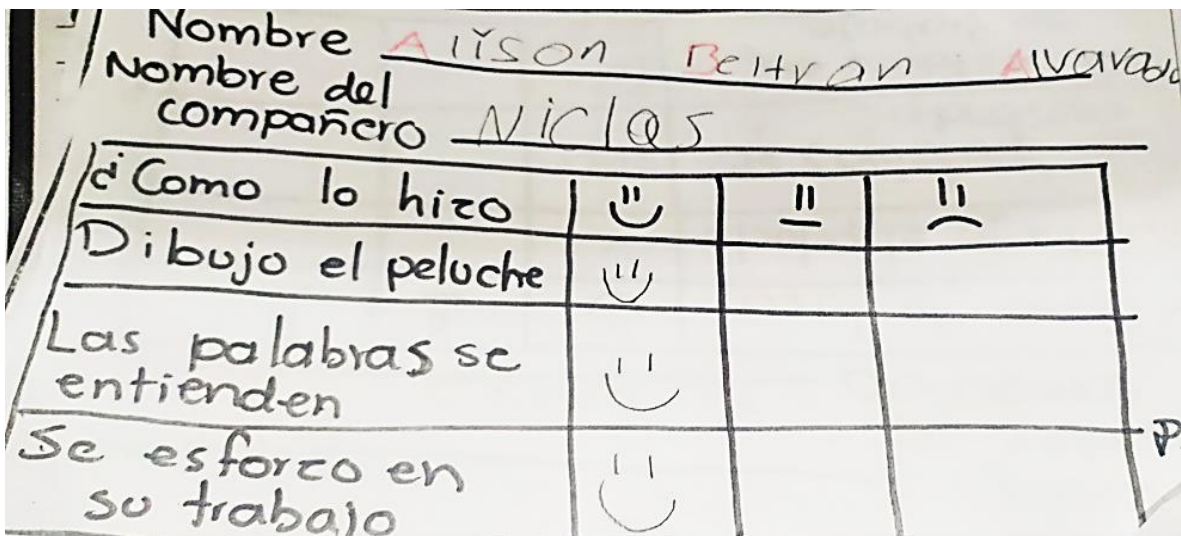 Nombre Alison Beltran Alvarado
Nombre del
compañero Niclas
¿Como lo hizo
Dibujo el peluche
Las palabras se
entienden
Se esforzo en
su trabajo